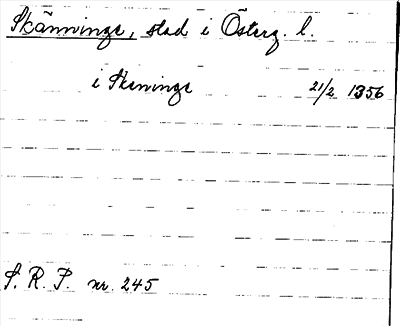 Skänninge, stad i Österg. l.
i Skeninge 21/2 1356
S. R. P. nr. 245